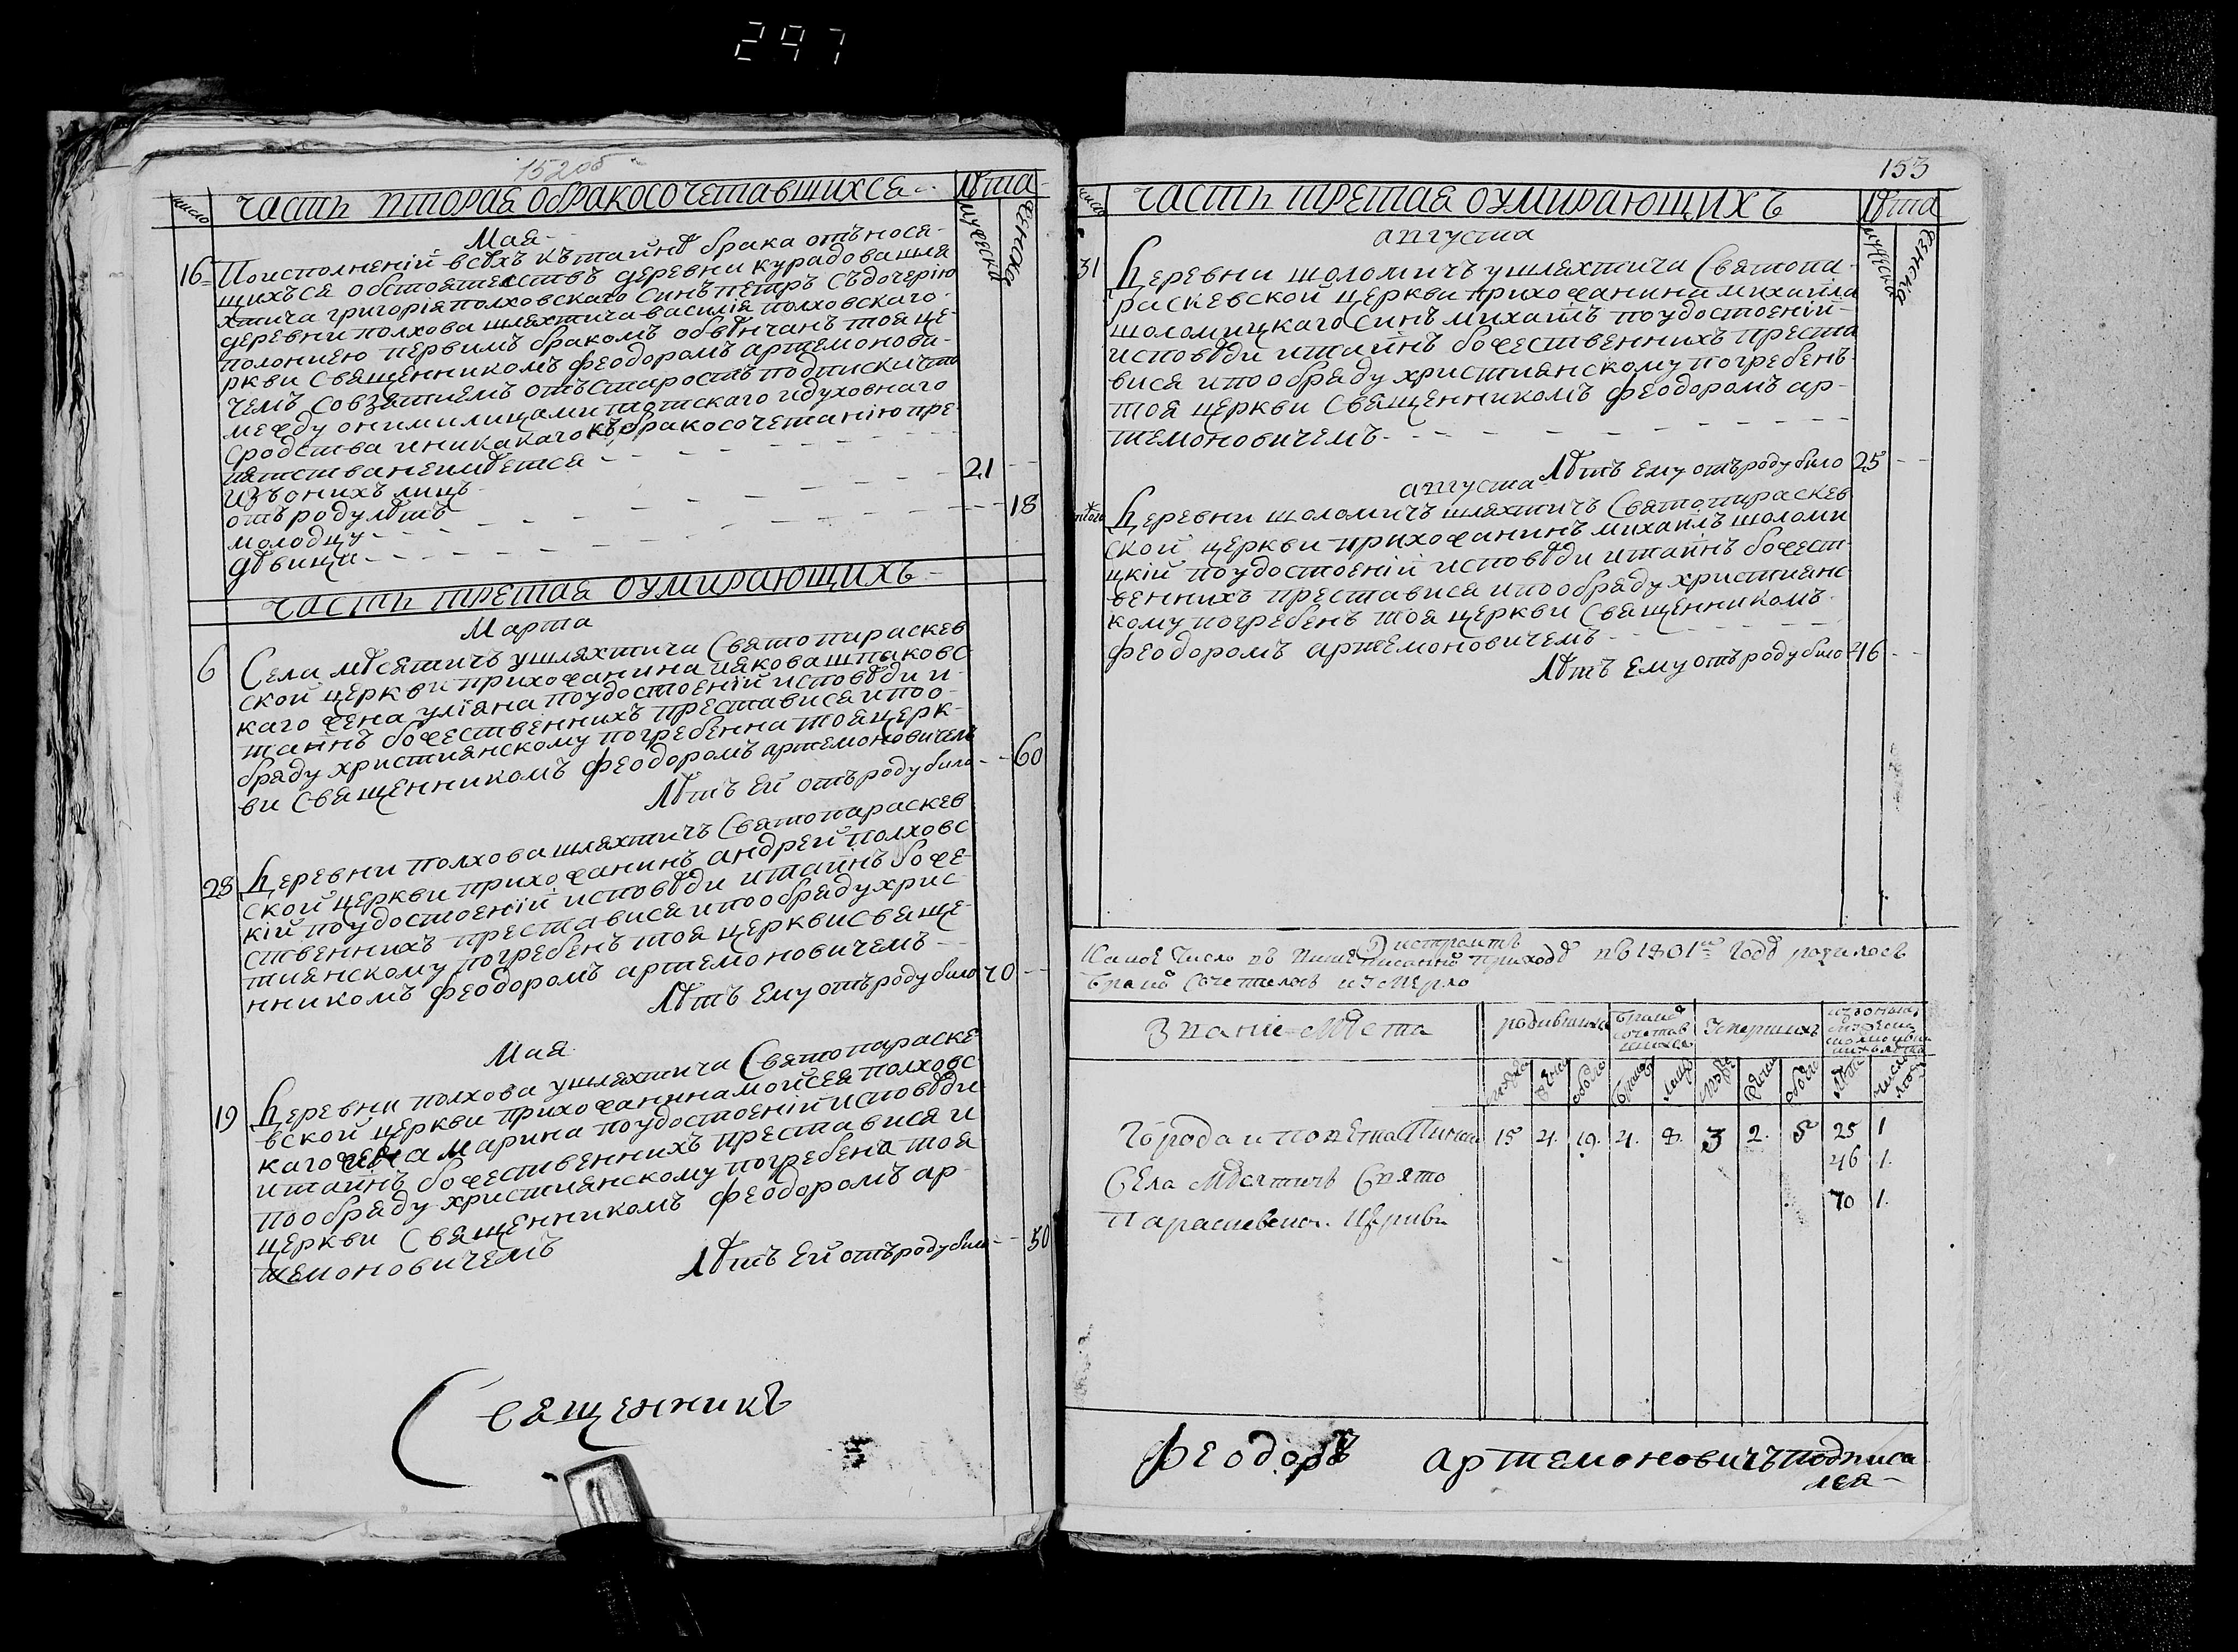 297
152об
число
ЧАСТЬ ВТОРАЯ ОБРАКОСОЧЕТАВШИХСЯ
Лѣта
мужеска
женска
Мая
16
По исполненій всѣхъ къ тайнѣ брака отъ нося-
щихъся обстоятелствъ деревни курадова шля
хтича григорія полховскаго синъ петръ съ дочерію
деревни полхова шляхтича василія полховскаго
полониею первимъ бракомъ обвѣнчанъ тоя це-
ркви священникомъ феодоромъ артемонови-
чемъ со взятиемъ отъ старостъ подписки что
между онимилицами плотскаго и духовнаго
сродства и никакаго къ бракосочетанію пре
пятства неимѣется
изъ онихъ лицъ
отъ роду лѣтъ
молодцу
21
дѣвици
18
ЧАСТЬ ТРЕТАЯ ОУМИРАЮЩИХЪ
Марта
6
Села мѣсятичъ у шляхтича святопараскев
ской церкви прихожанина иякова шпаковс
каго жена уліяна по удостоеній исповѣди и
таинъ божественнихъ преставися и по о-
бряду християнскому погребенна тоя церк-
ви священникомъ феодоромъ артемоновичемъ
Лѣтъ ей отъ роду било
60
28
Деревни полхова шляхтичъ святопараскев
ской церкви прихожанинъ андрей полховс
кій по удостоеній исповѣди и таинъ боже-
ственнихъ преставися и по обряду хрис-
тиянскому погребенъ тоя церкви свяще-
нникомъ феодоромъ артемоновичемъ
Лѣтъ ему отъ роду било
70
Мая
19
Деревни полхова у шляхтича святопараске
вской церкви прихожанина мойсея полховс
каго жена марина по удостоеній исповѣди
и таинъ божественнихъ преставися и
по обряду християнскому погребена тоя
церкви священникомъ феодоромъ ар-
темоновичемъ
Лѣтъ ей отъ роду било
50
Священникъ
153
число
ЧАСТЬ ТРЕТАЯ ОУМИРАЮЩИХЪ
Лѣта
мужеска
женска
августа
31
Деревни шоломичъ у шляхтича святопа-
раскевской церкви прихожанина михаила
шоломицкаго синъ михаилъ по удостоеній
исповѣди и таинъ божественнихъ преста
вися и по обряду християнскому погребенъ
тоя церкви священникомъ феодоромъ ар-
темоновичемъ
Лѣтъ ему отъ роду било
25
августа
Деревни шоломичъ шляхтичъ святопараскев
ской церкви прихожанинъ михаилъ шоломи
цкій по удостоеній исповѣди и таинъ божест-
веннихъ преставися и по обряду християнс
кому погребенъ тоя церкви священникомъ
феодоромъ артемоновичемъ
Лѣтъ ему отъ роду било
46
число въ приходѣ въ 1801м годѣ родилось
бракъ сочеталось и умерло
Званіе мѣста
родившихся
умершихъ
Города и повѣта Пинска
15 4. 19. 4. 8. 3 2. 5 25 1
Села Мѣсятичъ Свято
46 1.
Параскевск. Церкви
70 1.
Феодоръ Артемоновичъ подписа
лся